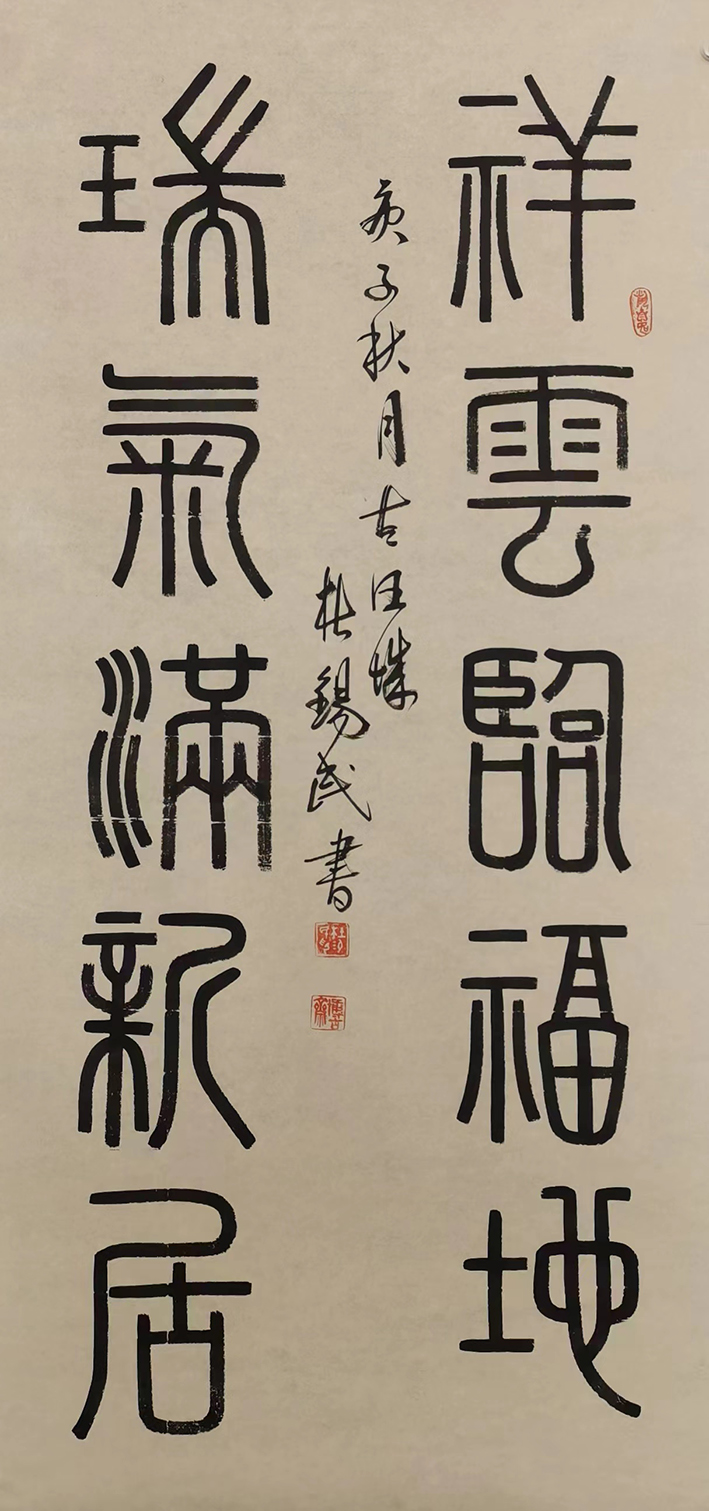 祥雲臨福地
瑞氣滿新居
庚子秋月古汪城
杜錫武書